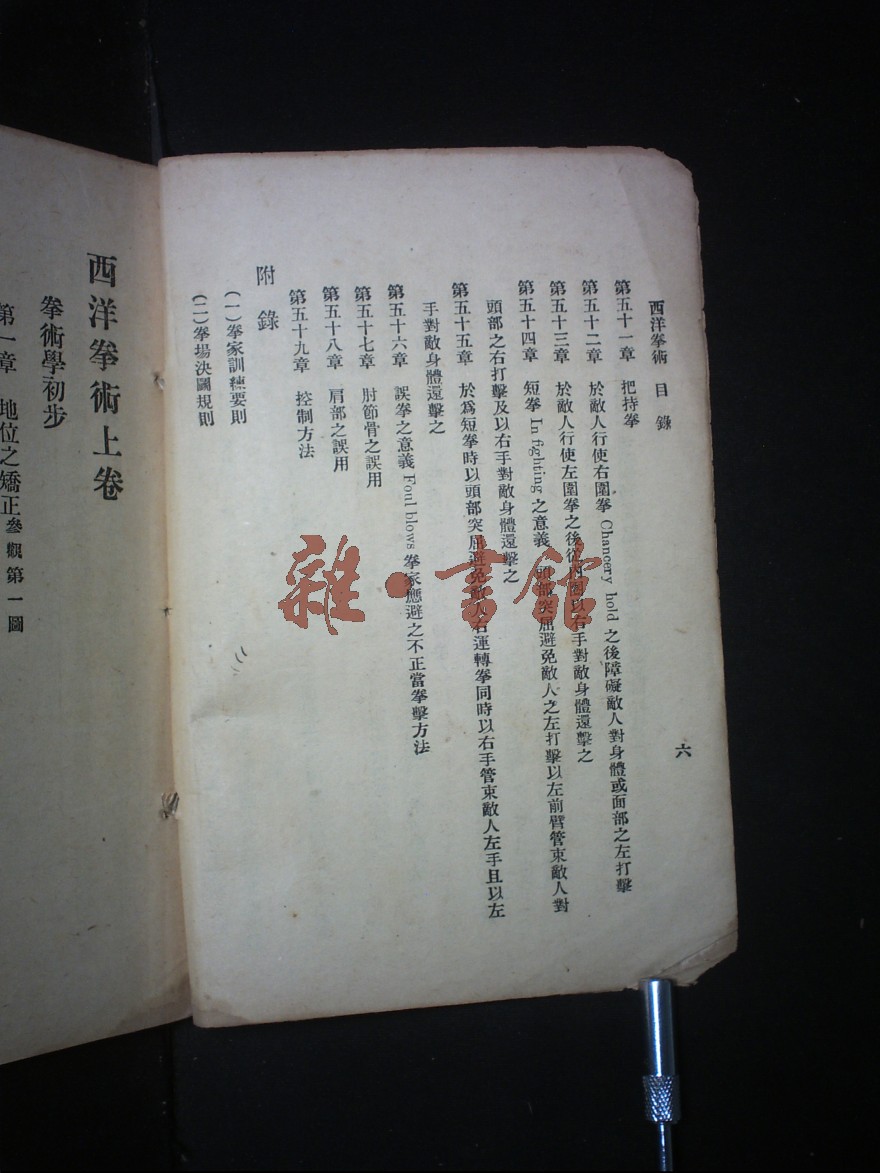 西洋拳術 目錄 六
第五十一章 把持拳
第五十二章 於敵人行使右圍拳 Chancery hold 之後障礙敵人對身體或面部之左打擊
第五十三章 於敵人行使左圍拳之後 以右手對敵身體還擊之
第五十四章 短拳 In fighting 之意義 頭部突屈避免敵人之左打擊以左前臂管束敵人對
頭部之右打擊及以右手對敵身體還擊之
第五十五章 於爲短拳時以頭部突屈避免敵人右運轉拳同時以右手管束敵人左手且以左
手對敵身體還擊之
第五十六章 誤拳之意義 Foul blows 拳家應避之不正當拳擊方法
第五十七章 肘節骨之誤用
第五十八章 肩部之誤用
第五十九章 控制方法
附錄
(一)拳家訓練要則
(二)拳場決鬭規則
西洋拳術上卷
拳術學初步
第一章 地位之矯正參觀第一圖
雜·書館